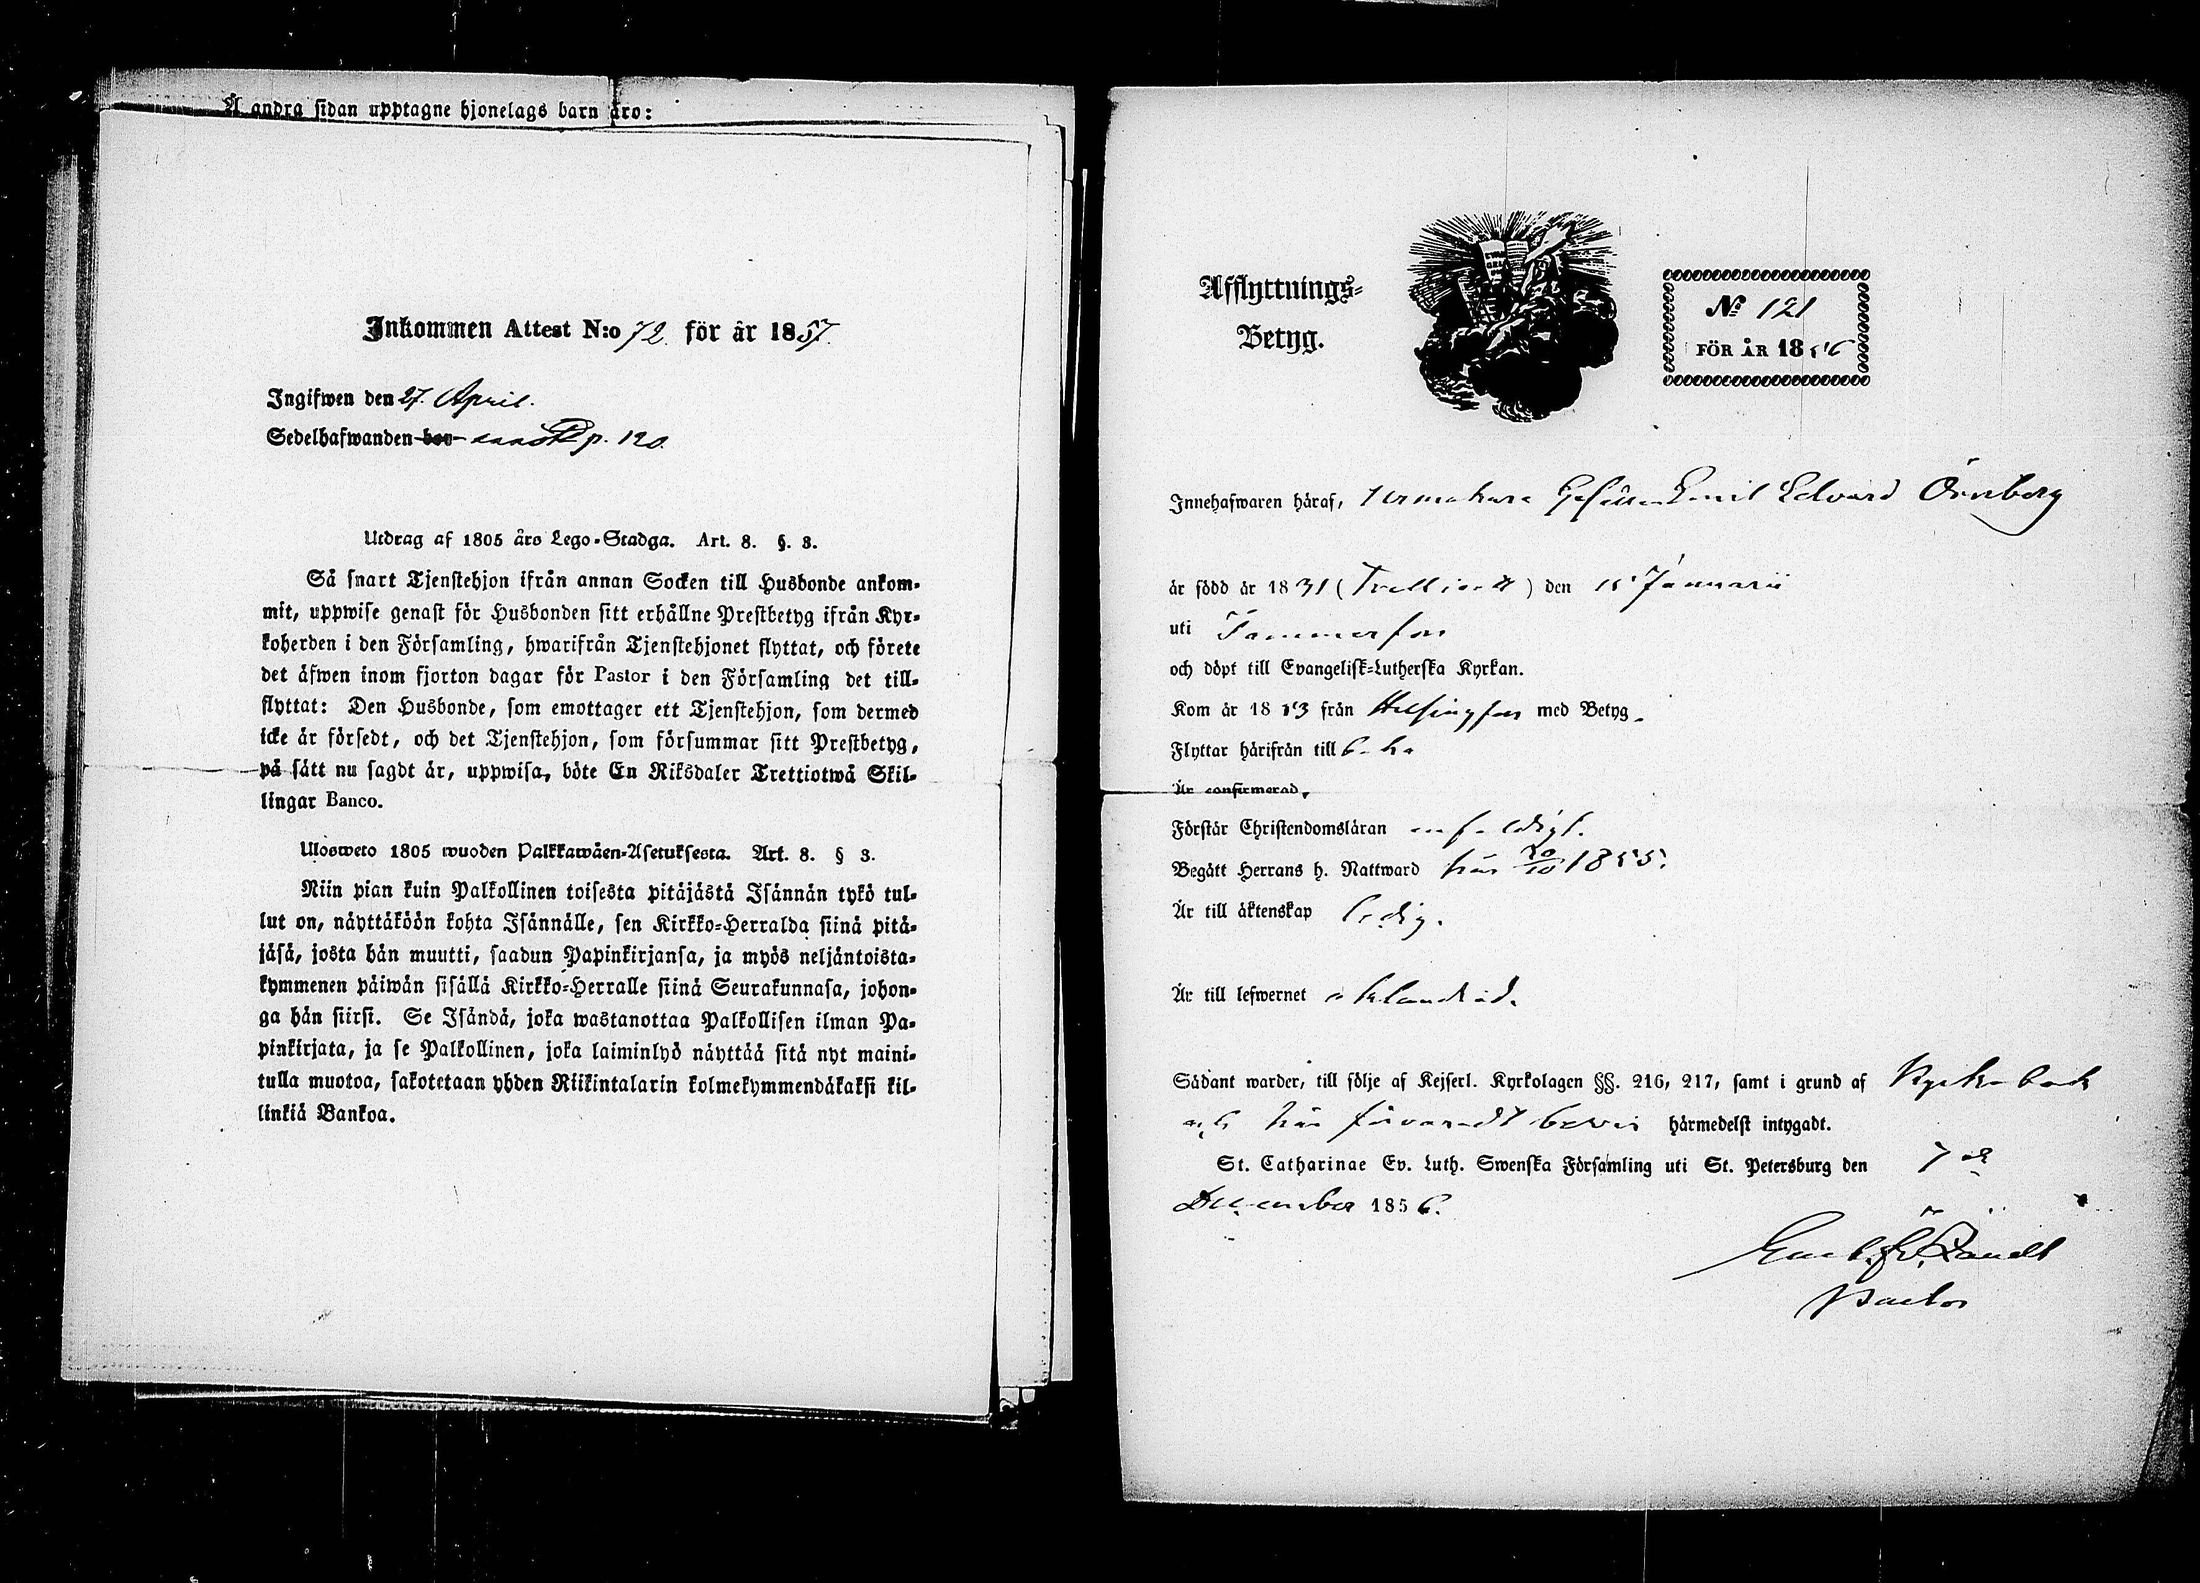 Å andra sidan upptagne hjonelags barn äro:
Inkommen Attest N:o 72. för år 1857.
Ingifwen den 27. April.
Sedelhafwanden bor p. 120.
Utdrag af 1805 års Lego-Stadga. Art. 8. §. 3.
Så snart Tjenstehjon ifrån annan Socken till Husbonde ankom-
mit, uppwise genast för Husbonden sitt erhållne Prestbetyg ifrån Kyr-
koherden i den Församling, hwarifrån Tjenstehjonet flyttat, och förete
det äfwen inom fjorton dagar för Pastor i den Församling det till-
flyttat: Den Husbonde, som emottager ett Tjenstehjon, som dermed
icke är försedt, och det Tjenstehjon, som försummar sitt Prestbetyg,
på sätt nu sagdt är, uppwisa, böte En Riksdaler Trettiotwå Skil-
lingar Banco.
Ulosweto 1805 wuoden Palkkawäen-Asetuksesta. Art. 8. § 3.
Niin pian kuin Palkollinen toisesta pitäjästä Isännän tykö tul-
lut on, näyttäköön kohta Isännälle, sen Kirkko-Herralda siinä pitä-
jäsä, josta hän muutti, saadun Papinkirjansa, ja myös neljäntoista-
kymmenen päiwän sisällä Kirkko-Herralle siinä Seurakunnasa, johon-
ga hän siirsi. Se Isändä, joka wastanottaa Palkollisen ilman Pa-
pinkirjata, ja se Palkollinen, joka laiminlyö näyttää sitä nyt maini-
tulla muotoa, sakotetaan yhden Riikintalarin kolmekymmendäkaksi kil-
linkiä Bankoa.
Afflyttnings-
Betyg.
№ 121
FÖR ÅR 1856
Innehafwaren häraf, Urmakare Gesällen Emil Edvard Örnberg
är född år 1831 ( ) den 15 Januarii
uti Tammerfors
och döpt till Evangelisk-Lutherska Kyrkan.
Kom år 1853 från Helsingfors med Betyg.
Flyttar härifrån till
Är confirmerad.
Förstår Christendomsläran enfaldigt.
Begått Herrans h. Nattward här 30/10 1855.
Är till äktenskap ledig.
Är till lefwernet oklandrad.
Sådant warder, till följe af Kejserl. Kyrkolagen §§. 216, 217, samt i grund af Kyrkobok
och här förvaradt bevis härmedelst intygadt.
St. Catharinae Ev. Luth. Swenska Församling uti St. Petersburg den 7de
December 1856.
Pastor